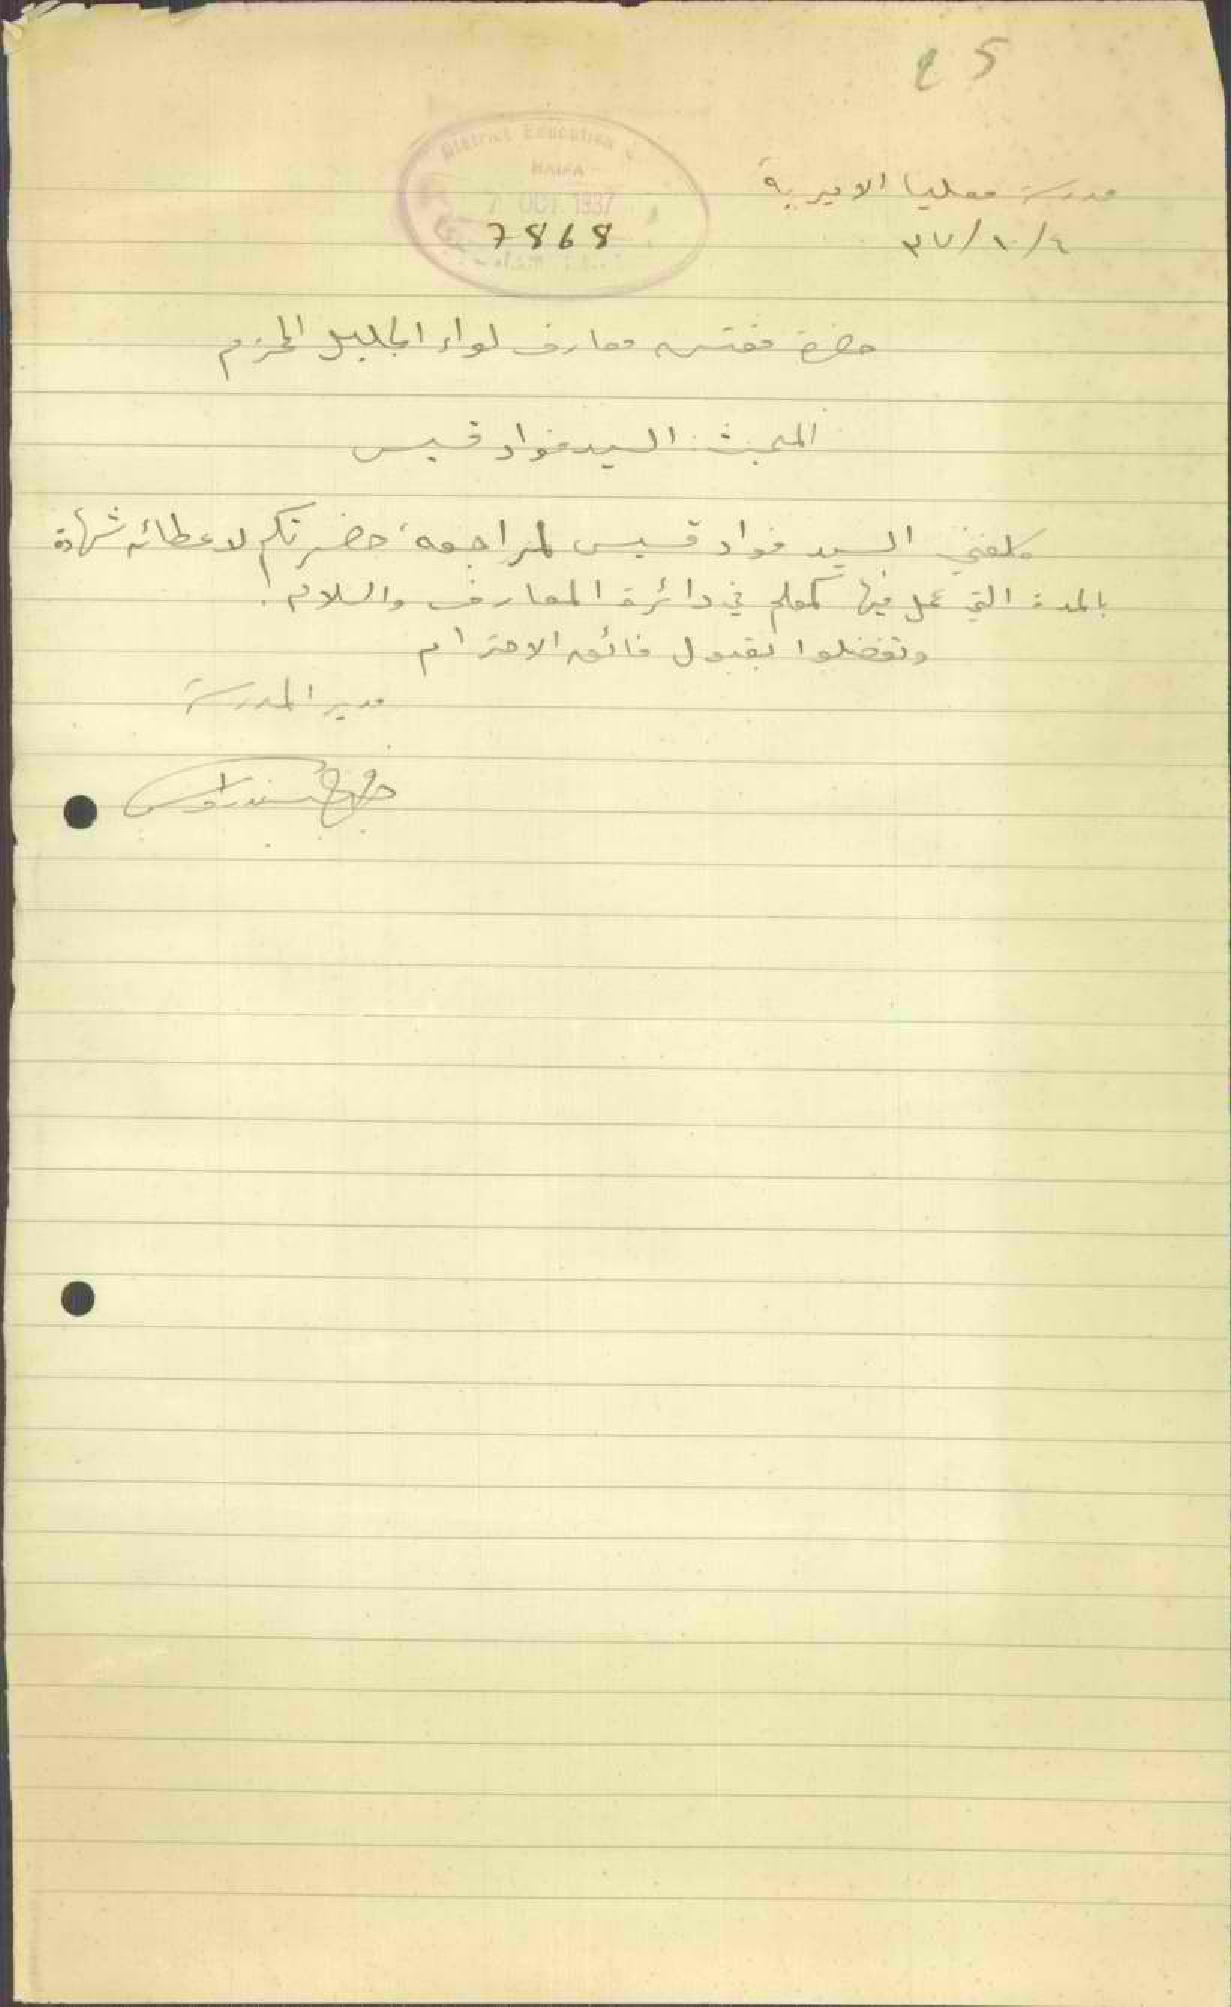 ٤٥
District Education
HAIFA
7 OCT 1937
7868
مدرسة معليا الاميرية
٣٧/١٠/٤
حضرة مفتش معارف لواء الجليل المحترم
المبحث: السيد فواد قسيس
كلفني السيد فواد قسيس لمراجعة حضرتكم لاعطائه شهادة
بالمدة التي عمل فيها كمعلم في دائرة المعارف والسلام.
وتفضلوا بقبول فائق الاحترام
مدير المدرسة